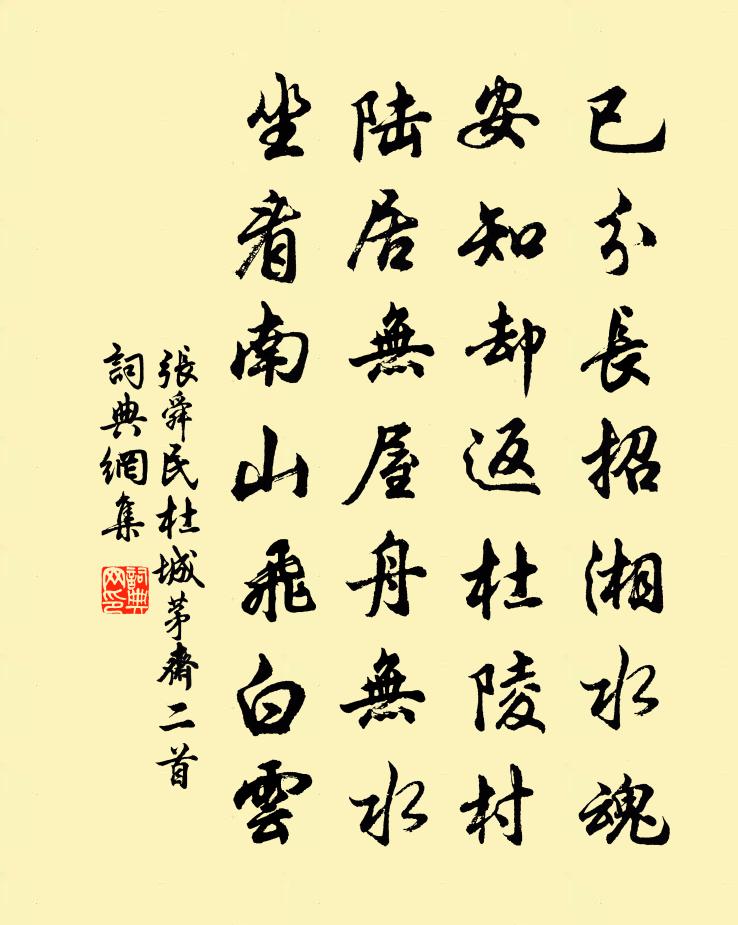 已分長招湘水魂
安知却返杜陵村
陆居無屋舟無水
坐看南山飛白雲
張舜民杜城茅齋二首
詞典網集
詞典
网印